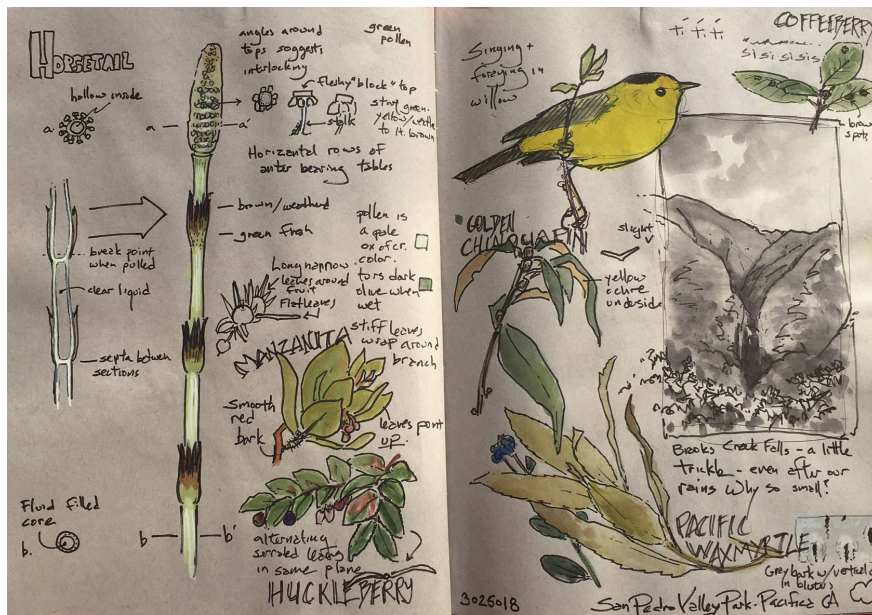 HORSETAIL
hollow inside
a
a
a'
angles around
tops suggest
interlocking
green
pollen
fleshy "block" top
stalk
start green-
to lt. brown
Horizontal rows of
bearing tables
brown/weathered
green fresh
break point
when pulled
clear liquid
septa between
sections
pollen is
a pale
color.
dark
olive when
wet
Long narrow
leaves around
fruit
Flat leaves
MANZANITA
stiff leaves
wrap around
branch
smooth
red
bark
leaves point
up.
Fluid filled
core
b.
b
b'
alternating
serrated leaves
in same plane
HUCKLEBERRY
Singing +
foraging in
willow
COFFEEBERRY
sisi sisis
brown
spots
GOLDEN
CHINQUAPIN
slight
V
yellow
ochre
underside
Brooks Creek Falls - a little
trickle - even after our
rains why so small?
PACIFIC
WAXMYRTLE
Grey bark w/ vertical
3025018
San Pedro Valley Park - Pacifica CA